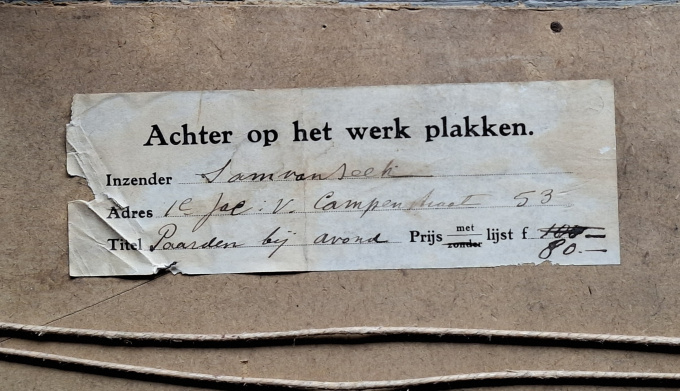 Achter op het werk plakken.
Inzender Sam van Beek
Adres 1e Jac: v. Campenstraat 53
Titel Paarden bij avond Prijs met zonder lijst f 100.— 80.—